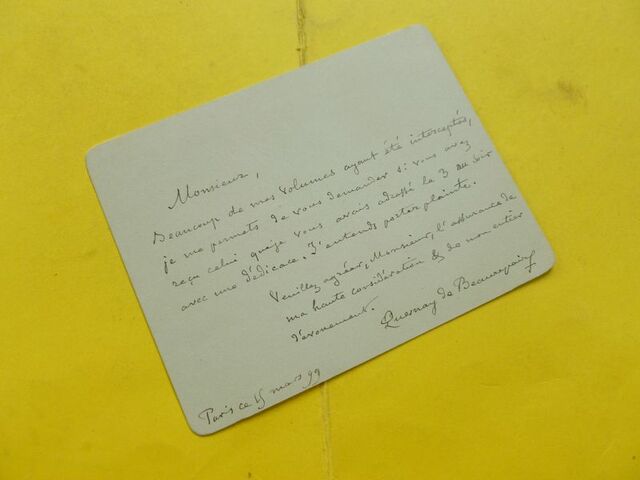 Monsieur,
Beaucoup de mes volumes ayant été interceptés,
je me permets de vous demander si vous avez
reçu celui que je vous avais adressé le 3 au soir
avec une dédicace. J'entends porter plainte.
Veuillez agréer, Monsieur, l'assurance de
ma haute considération & de mon entier
dévouement.
Quesnay de Beaurepaire
Paris ce 15 mars 99